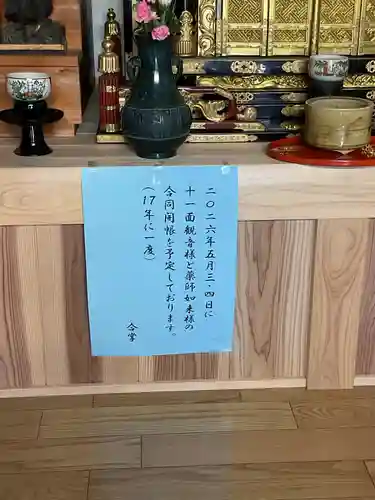 二〇二六年五月三・四日に
十一面観音様と薬師如来様の
合同開帳を予定しております。
(17年に一度)
合掌